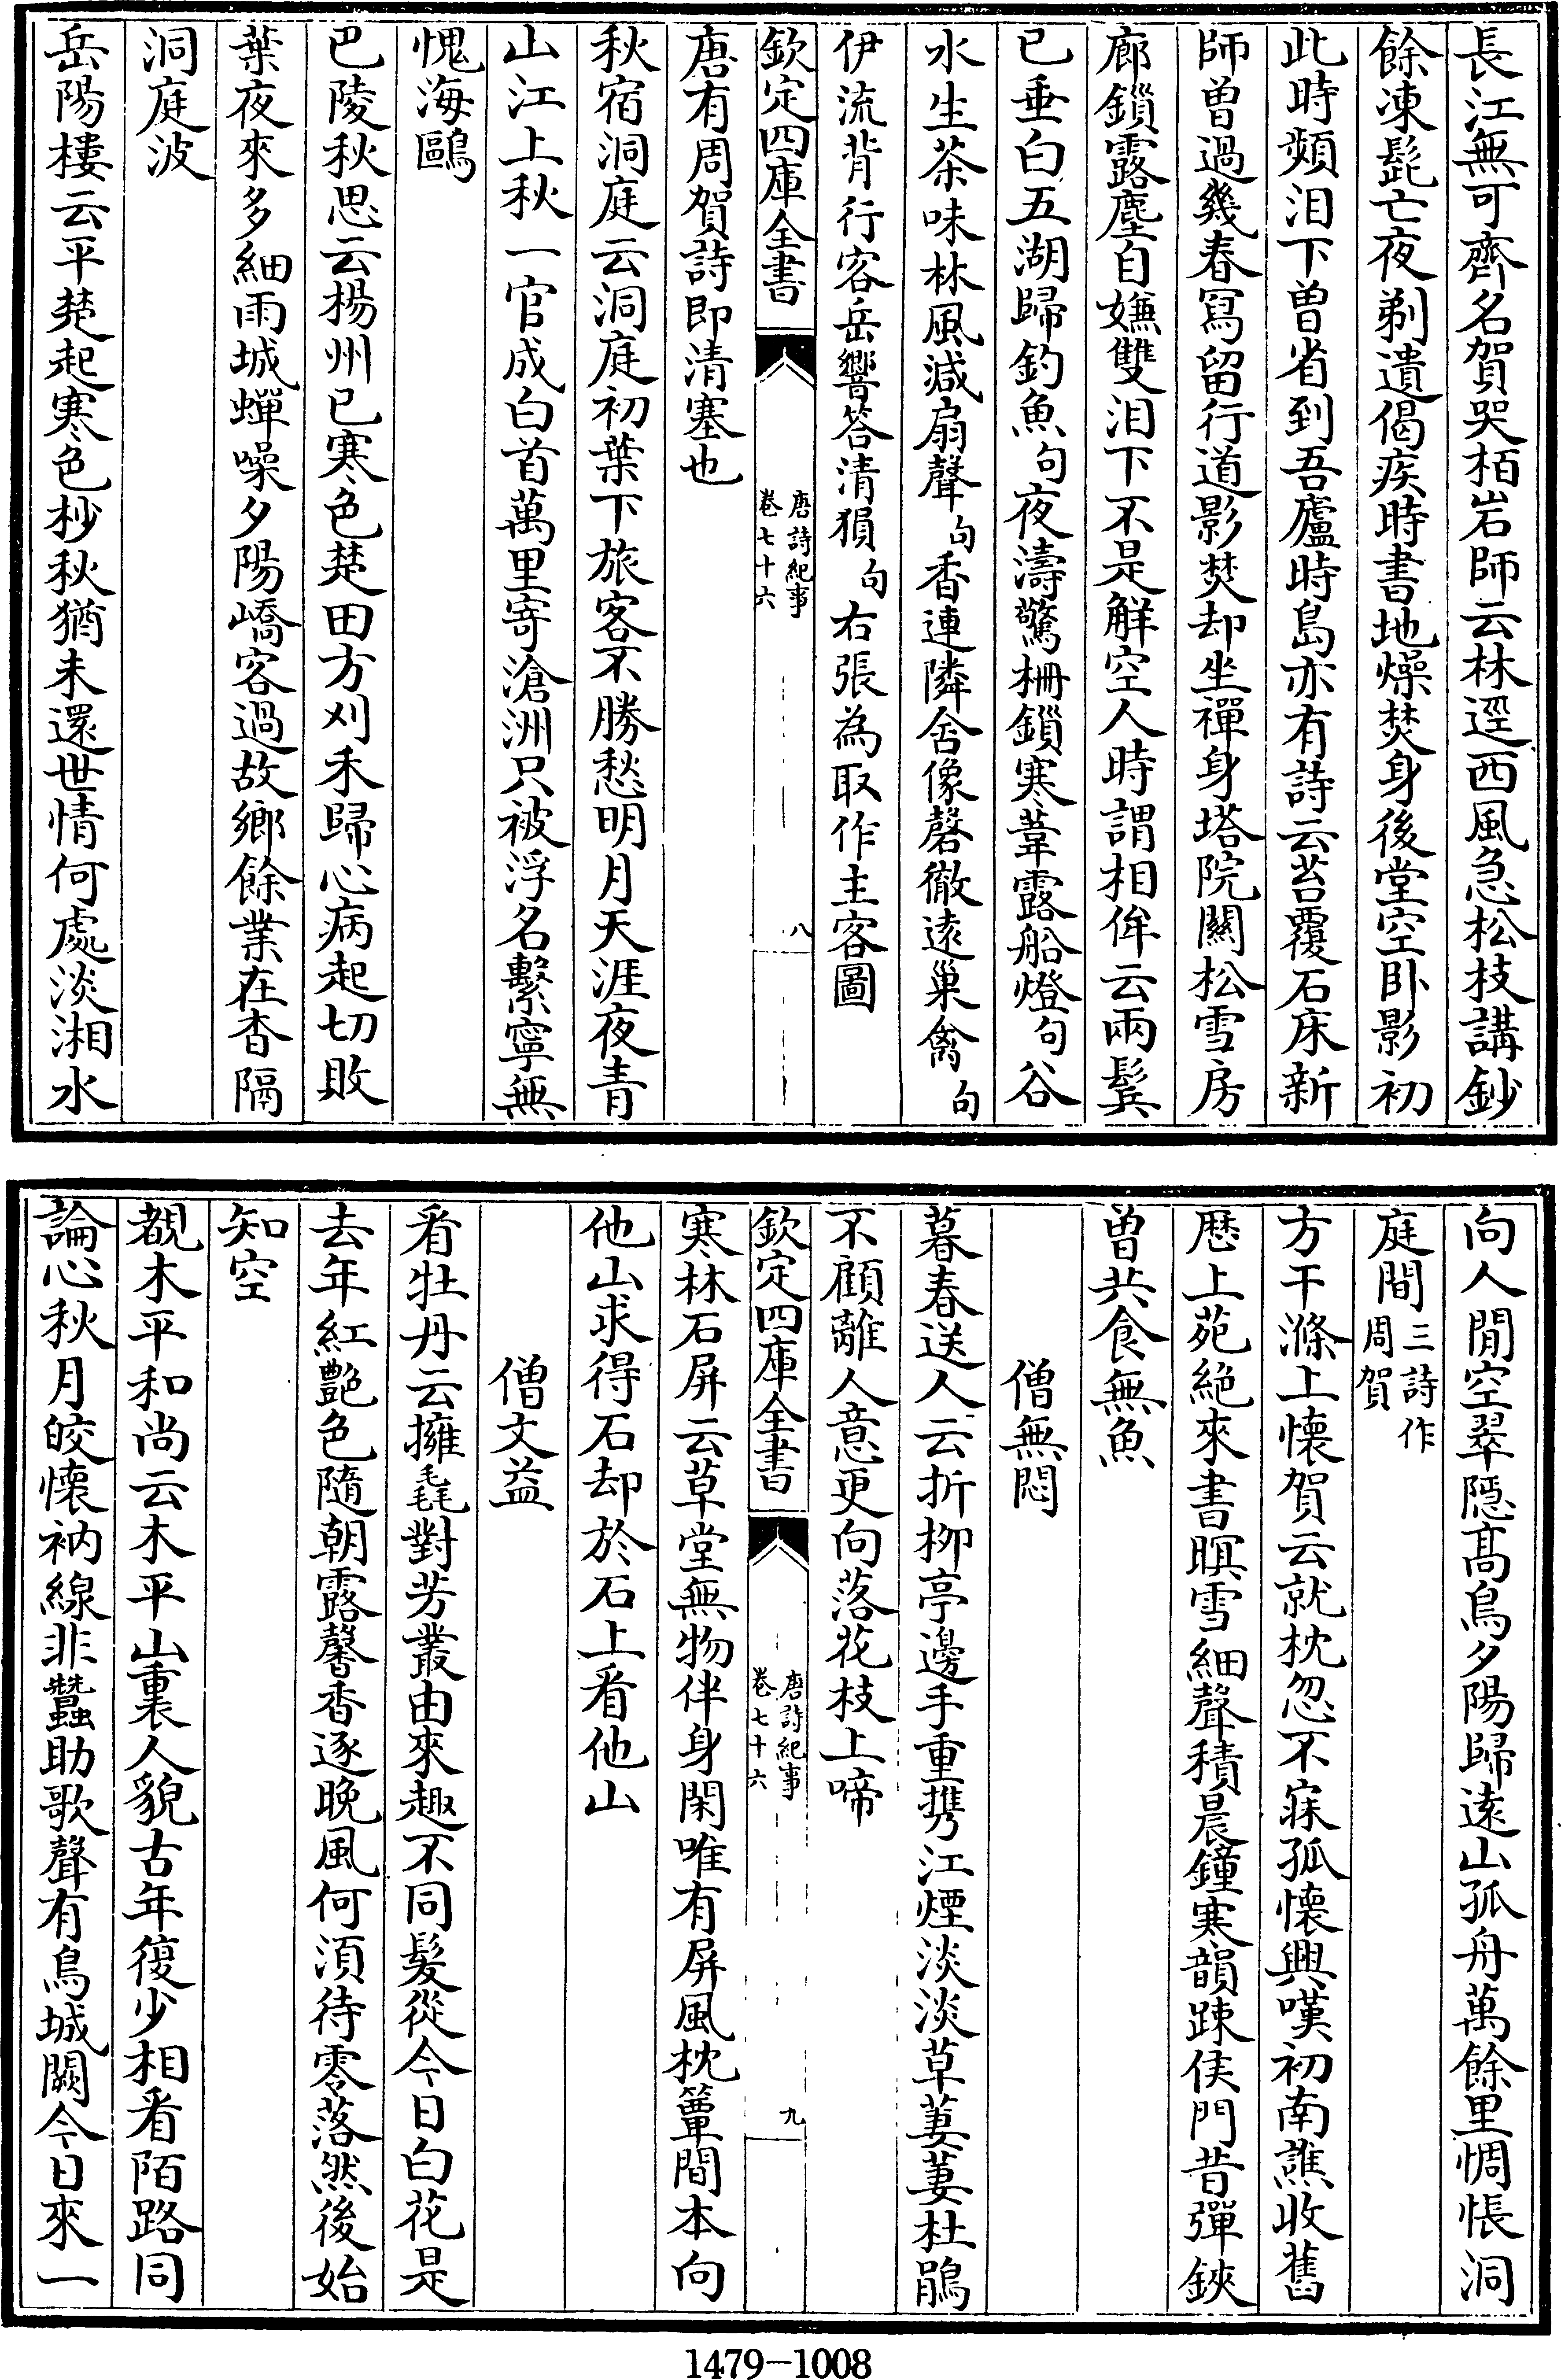 長江無可齊名賀哭栢岩師云林逕西風急松枝講鈔
餘凍髭亡夜剃遺偈疾時書地燥焚身後堂空卧影初
此時頻泪下曽省到吾廬時島亦有詩云苔覆石床新
師曽過幾春寫留行道影焚却坐禪身塔院關松雪房
廊鎻露塵自嫌雙泪下不是解空人時謂相侔云兩鬂
已垂白五湖歸釣魚句夜濤驚柵鎻寒葦露船燈句谷
水生茶味林風減扇聲句香連隣舍像磬徹遠巢禽句
伊流背行客岳響答清猿句右張為取作主客圖
欽定四庫全書
唐詩紀事
卷七十六
八
唐有周賀詩即清塞也
秋宿洞庭云洞庭初葉下旅客不勝愁明月天涯夜青
山江上秋一官成白首萬里寄滄洲只被浮名繫寧無
愧海鷗
巴陵秋思云楊州已寒色楚田方刈禾歸心病起切敗
葉夜來多細雨城蟬噪夕陽嶠客過故鄉餘業在杳隔
洞庭波
岳陽樓云平楚起寒色杪秋猶未還世情何處淡湘水
向人閒空翠隱髙鳥夕陽歸遠山孤舟萬餘里惆悵洞
庭間三詩作
周賀
方干滁上懷賀云就枕忽不寐孤懷興嘆初南譙收舊
厯上苑絶來書暝雪細聲積晨鐘寒韻踈侯門昔彈鋏
曽共食無魚
僧無悶
暮春送人云折栁亭邊手重携江煙淡淡草萋萋杜鵑
不顧離人意更向落花枝上啼
欽定四庫全書
唐詩紀事
卷七十六
九
寒林石屏云草堂無物伴身閑唯有屏風枕簟間本向
他山求得石却於石上看他山
僧文益
看牡丹云擁毳對芳叢由來趣不同髮從今日白花是
去年紅艶色隨朝露馨香逐晚風何須待零落然後始
知空
覩木平和尚云木平山裏人貌古年復少相看陌路同
論心秋月皎懷衲線非蠶助歌聲有鳥城闕今日來一
1479-1008